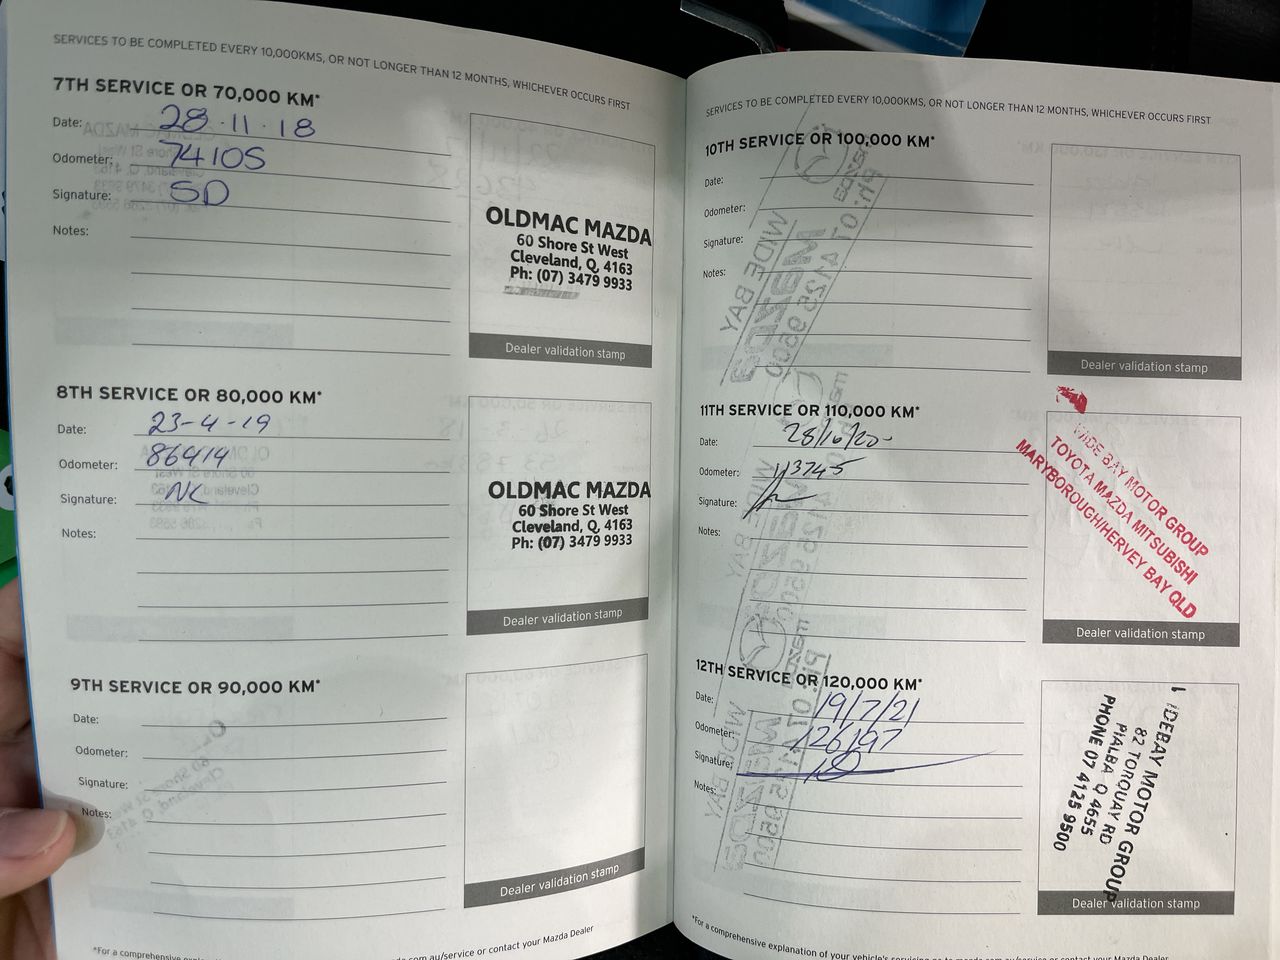 SERVICES TO BE COMPLETED EVERY 10,000KMS, OR NOT LONGER THAN 12 MONTHS, WHICHEVER OCCURS FIRST
7TH SERVICE OR 70,000 KM*
Date: 28.11.18
Odometer: 74105
Signature: SD
Notes:
OLDMAC MAZDA
60 Shore St West
Cleveland, Q, 4163
Ph: (07) 3479 9933
Dealer validation stamp
8TH SERVICE OR 80,000 KM*
Date: 23-4-19
Odometer: 86414
Signature: NC
Notes:
OLDMAC MAZDA
60 Shore St West
Cleveland, Q, 4163
Ph: (07) 3479 9933
Dealer validation stamp
9TH SERVICE OR 90,000 KM*
Date:
Odometer:
Signature:
Notes:
Dealer validation stamp
*For a comprehensive
au/service or contact your Mazda Dealer
SERVICES TO BE COMPLETED EVERY 10,000KMS, OR NOT LONGER THAN 12 MONTHS, WHICHEVER OCCURS FIRST
10TH SERVICE OR 100,000 KM*
Date:
Odometer:
Signature:
Notes:
Dealer validation stamp
11TH SERVICE OR 110,000 KM*
Date:
Odometer: 113745
Signature:
Notes:
WIDE BAY MOTOR GROUP
TOYOTA MAZDA MITSUBISHI
MARYBOROUGH/HERVEY BAY QLD
Dealer validation stamp
12TH SERVICE OR 120,000 KM*
Date: 19/7/21
Odometer: 126197
Signature:
Notes:
IDEBAY MOTOR GROUP
82 TORQUAY RD
PIALBA Q 4655
PHONE 07 4125 9500
Dealer validation stamp
*For a comprehensive explanation of your vehicle's servicing
au/service or contact your Mazda Dealer